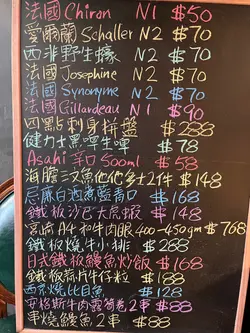 法國 Chiron N1 $50
愛爾蘭 Schaller N2 $70
西非野生蠔 N2 $70
法國 Josephine N2 $70
法國 Synonyme N2 $70
法國 Gillardeau N1 $90
四點刺身拼盤 $288
健力士黑啤生啤 $78
Asahi 辛口 500ml $58
海膽三文魚他他多士2件 $148
尼麻白酒煮藍青口 $168
鐵板沙巴大虎蝦 $148
宮崎A4和牛肉眼 400-450gm $768
鐵板燒牛小排 $288
日式鐵板鰻魚炒飯 $168
鐵板蒜片牛仔粒 $188
西京燒比目魚 $128
安格斯牛肉露筍卷2串 $88
串燒鰻魚2串 $88